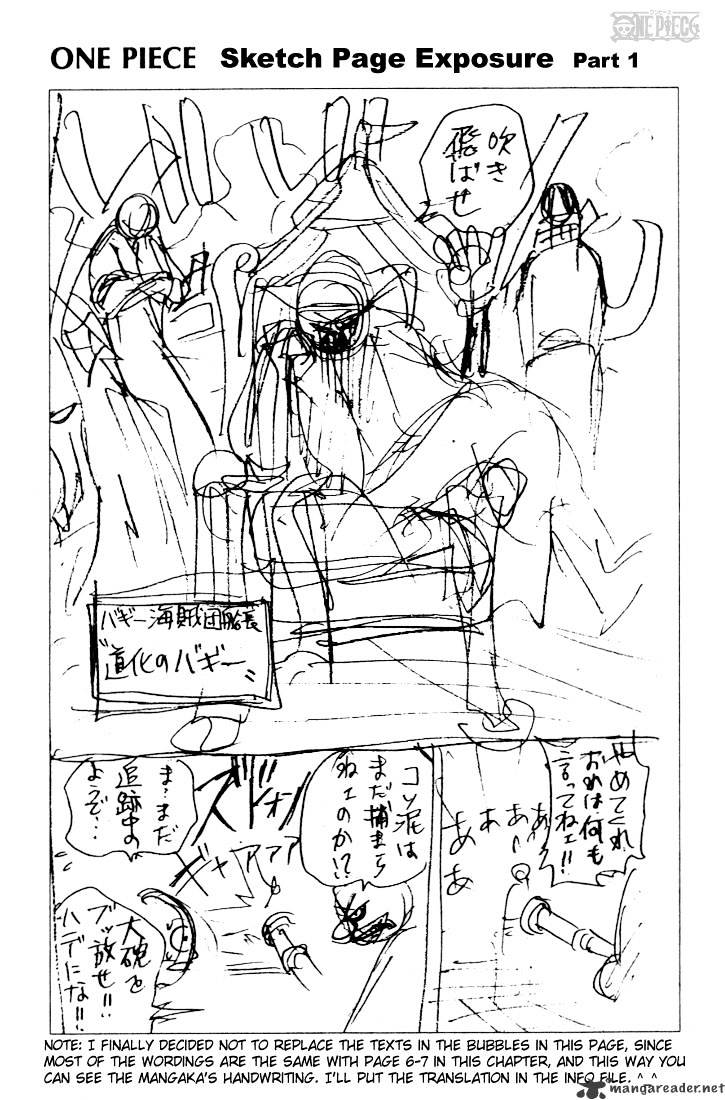 ワンピース
ONE PIECE
ONE PIECE Sketch Page Exposure Part 1
吹き
飛ばせ
バギー海賊団船長
"道化のバギー"
やめてくれ
おれは何も
言ってねェ!!
あ
あ〜
あ
ああ
コソ泥は
まだ捕まら
ねェのか!?
ズドオン
ギャアアア
ま…まだ
追跡中の
ようで…
大砲を
ブッ放せ!!
ハデにな!!
NOTE: I FINALLY DECIDED NOT TO REPLACE THE TEXTS IN THE BUBBLES IN THIS PAGE, SINCE
MOST OF THE WORDINGS ARE THE SAME WITH PAGE 6-7 IN THIS CHAPTER, AND THIS WAY YOU
CAN SEE THE MANGAKA'S HANDWRITING. I'LL PUT THE TRANSLATION IN THE INFO FILE. ^_^
mangareader.net